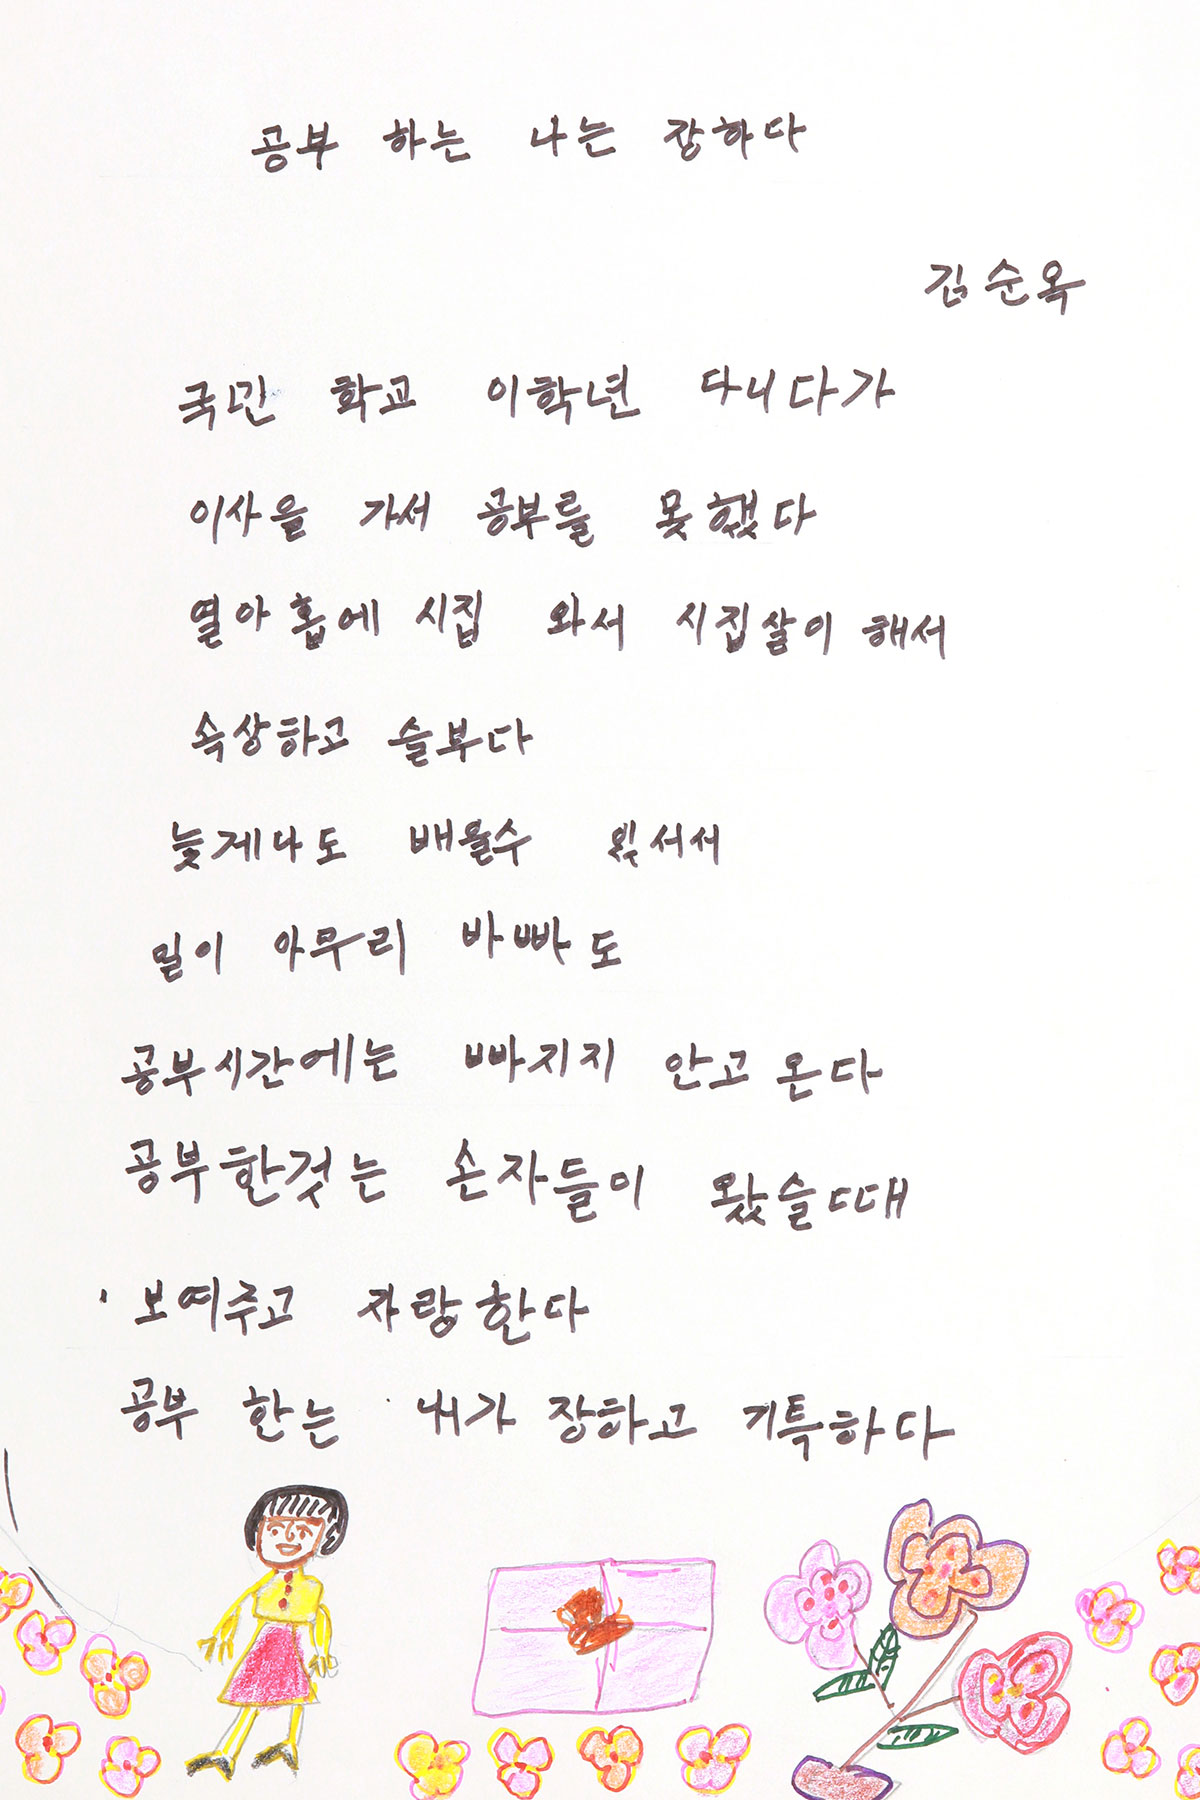 공부 하는 나는 장하다
김순옥
국민 학교 이학년 다니다가
이사을 가서 공부를 못했다
열아홉에 시집 와서 시집살이 해서
속상하고 슬부다
늦게나도 배울수 있서서
일이 아무리 바빠도
공부시간에는 빠지지 안고 온다
공부한것는 손자들이 왔슬때
보여주고 자랑한다
공부 한는 내가 장하고 기특하다